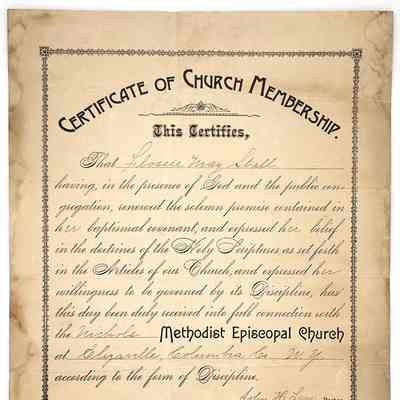 CERTIFICATE OF CHURCH MEMBERSHIP.
This Certifies,
That Flossie May Stall
having, in the presence of God and the public con-
gregation, renewed the solemn promise contained in
her baptismal covenant, and expressed her belief
in the doctrines of the Holy Scriptures as set forth
in the Articles of our Church, and expressed her
willingness to be governed by its Discipline, has
this day been duly received into full connection with
the Nichols Methodist Episcopal Church
at Elizaville, Columbia Co. N.Y.
according to the form of Discipline.
John H.